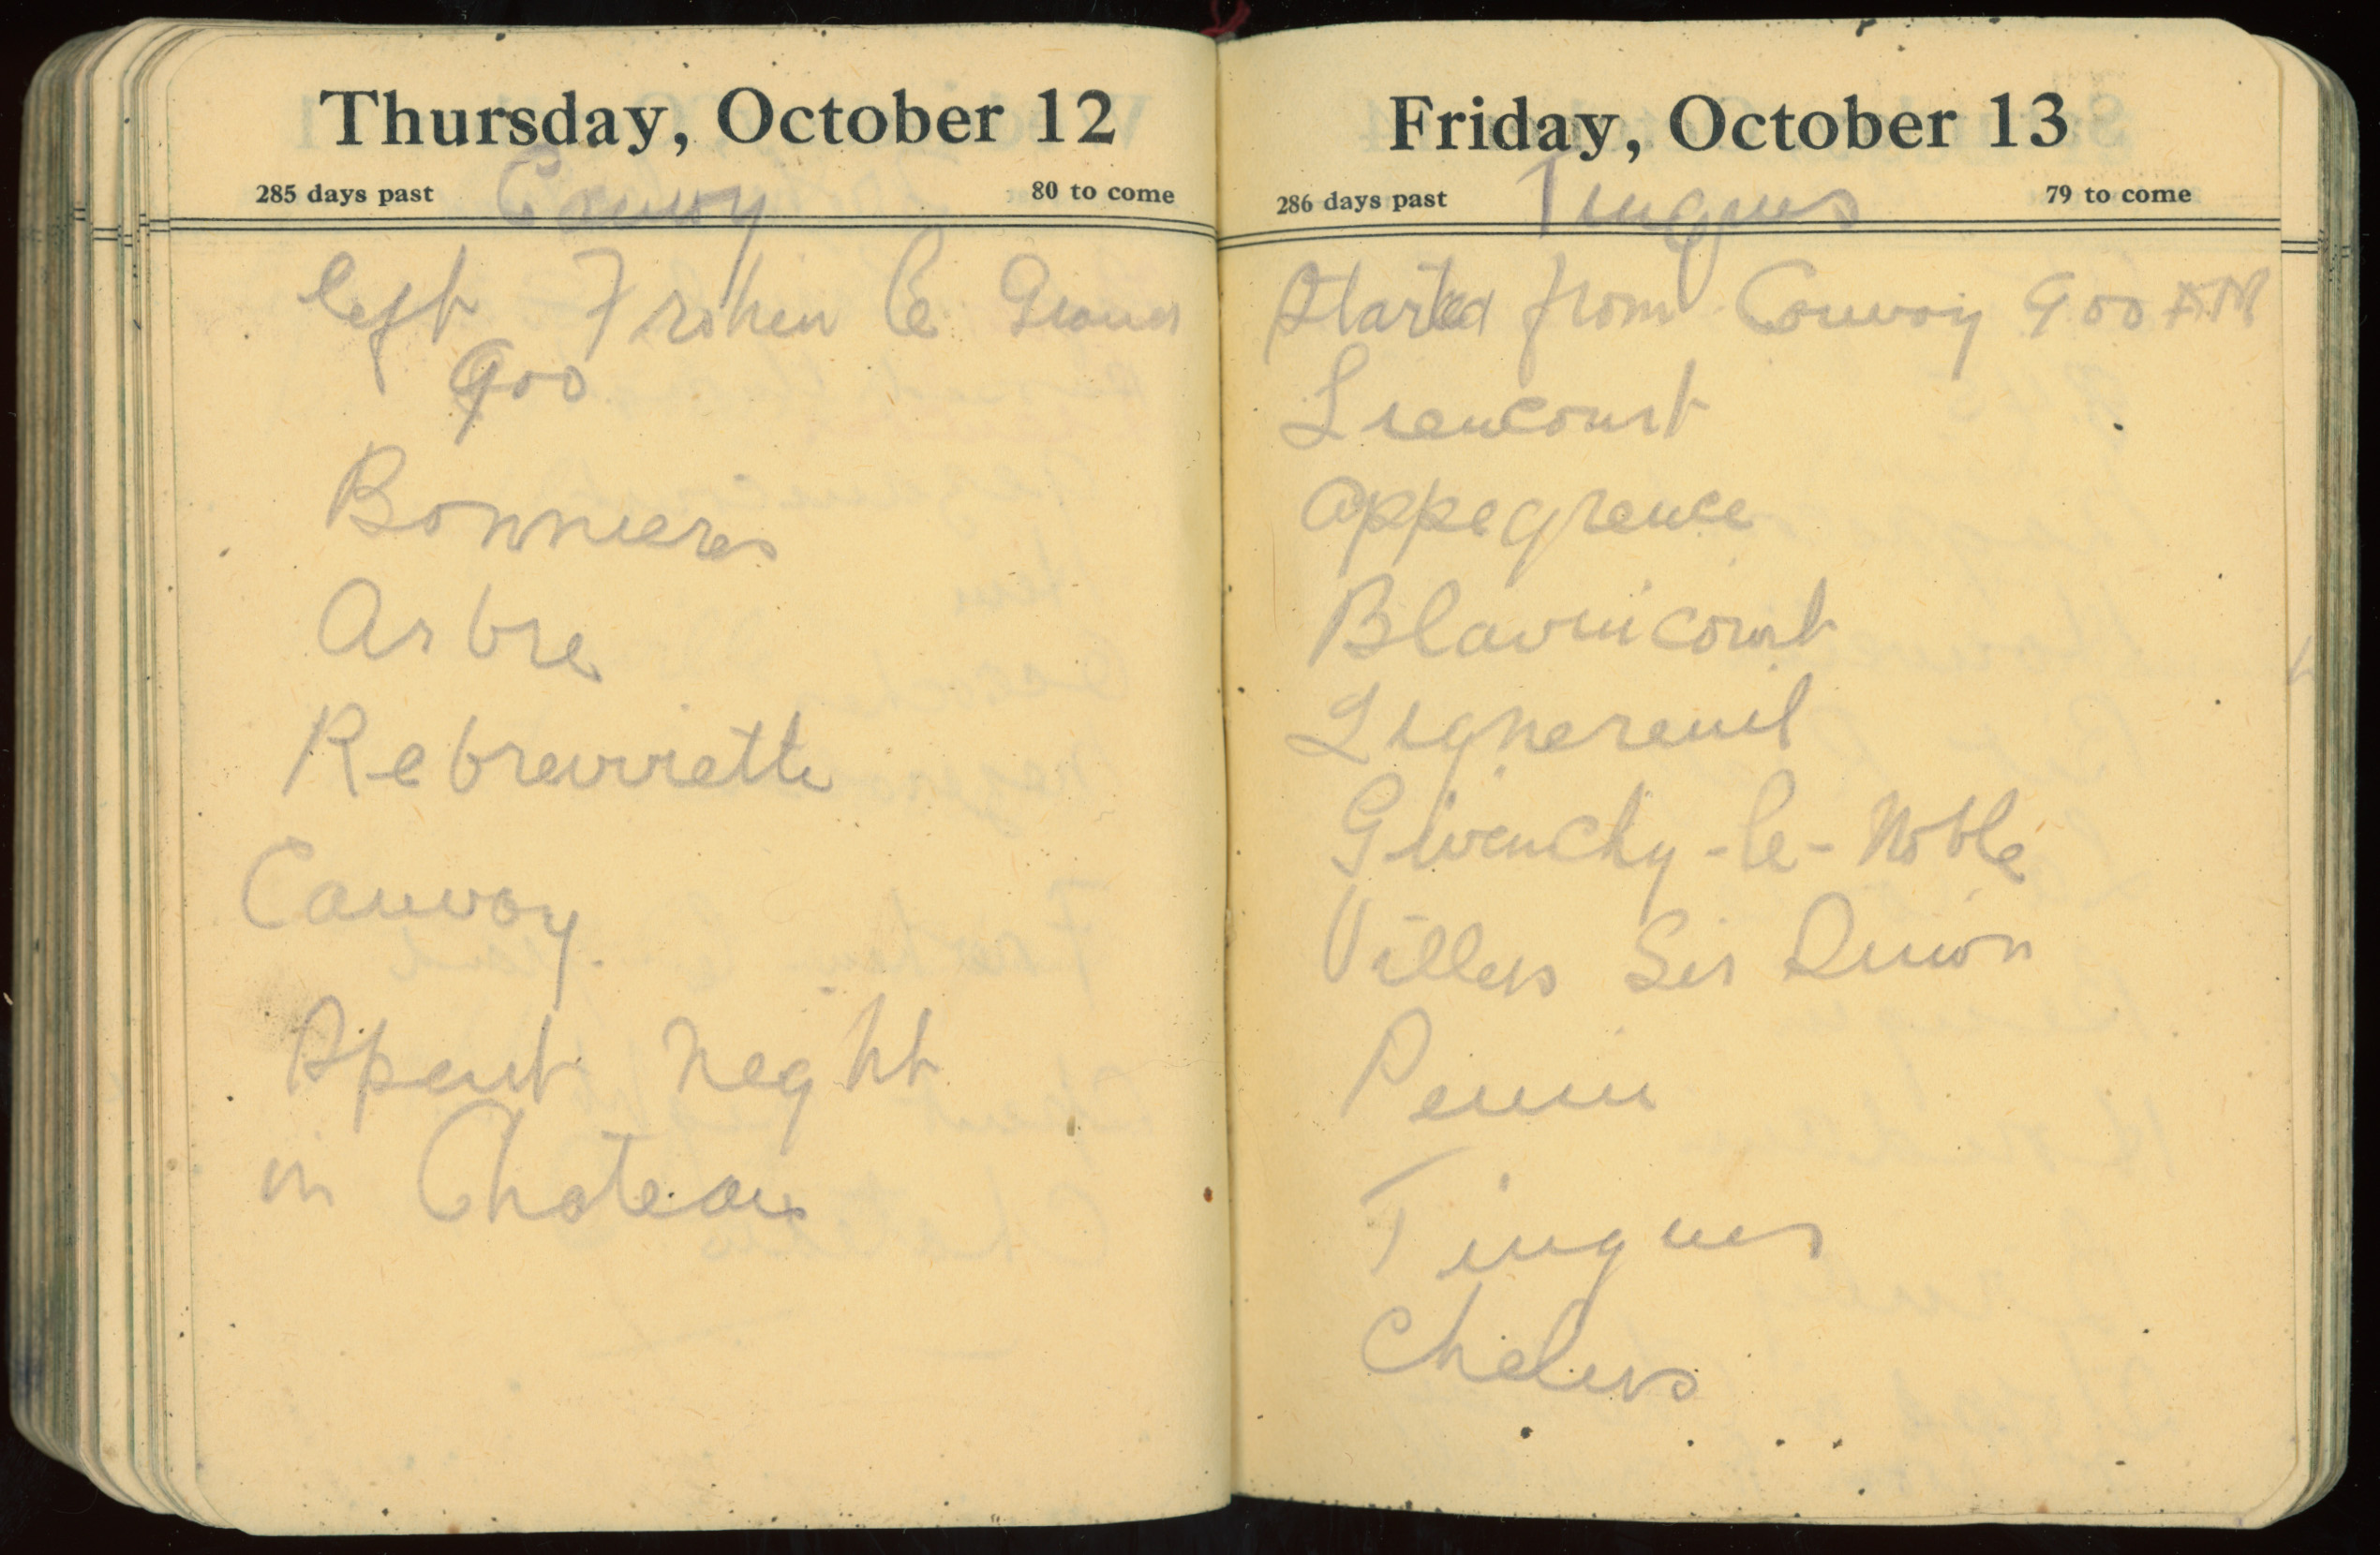 Thursday, October 12
285 days past
80 to come
Conwoy
left Frohen le Grand
900
Bonnieres
Arbre
Rebreuviette
Canwoy
Spent neght
in Chateau
Friday, October 13
286 days past
79 to come
Tinques
Started from Conwoy 900 AM
Liencourt
appegrence
Blavincourt
Lignereuil
Givenchy-le-Noble
Villers Sir
Penin
Tinques
Chelers